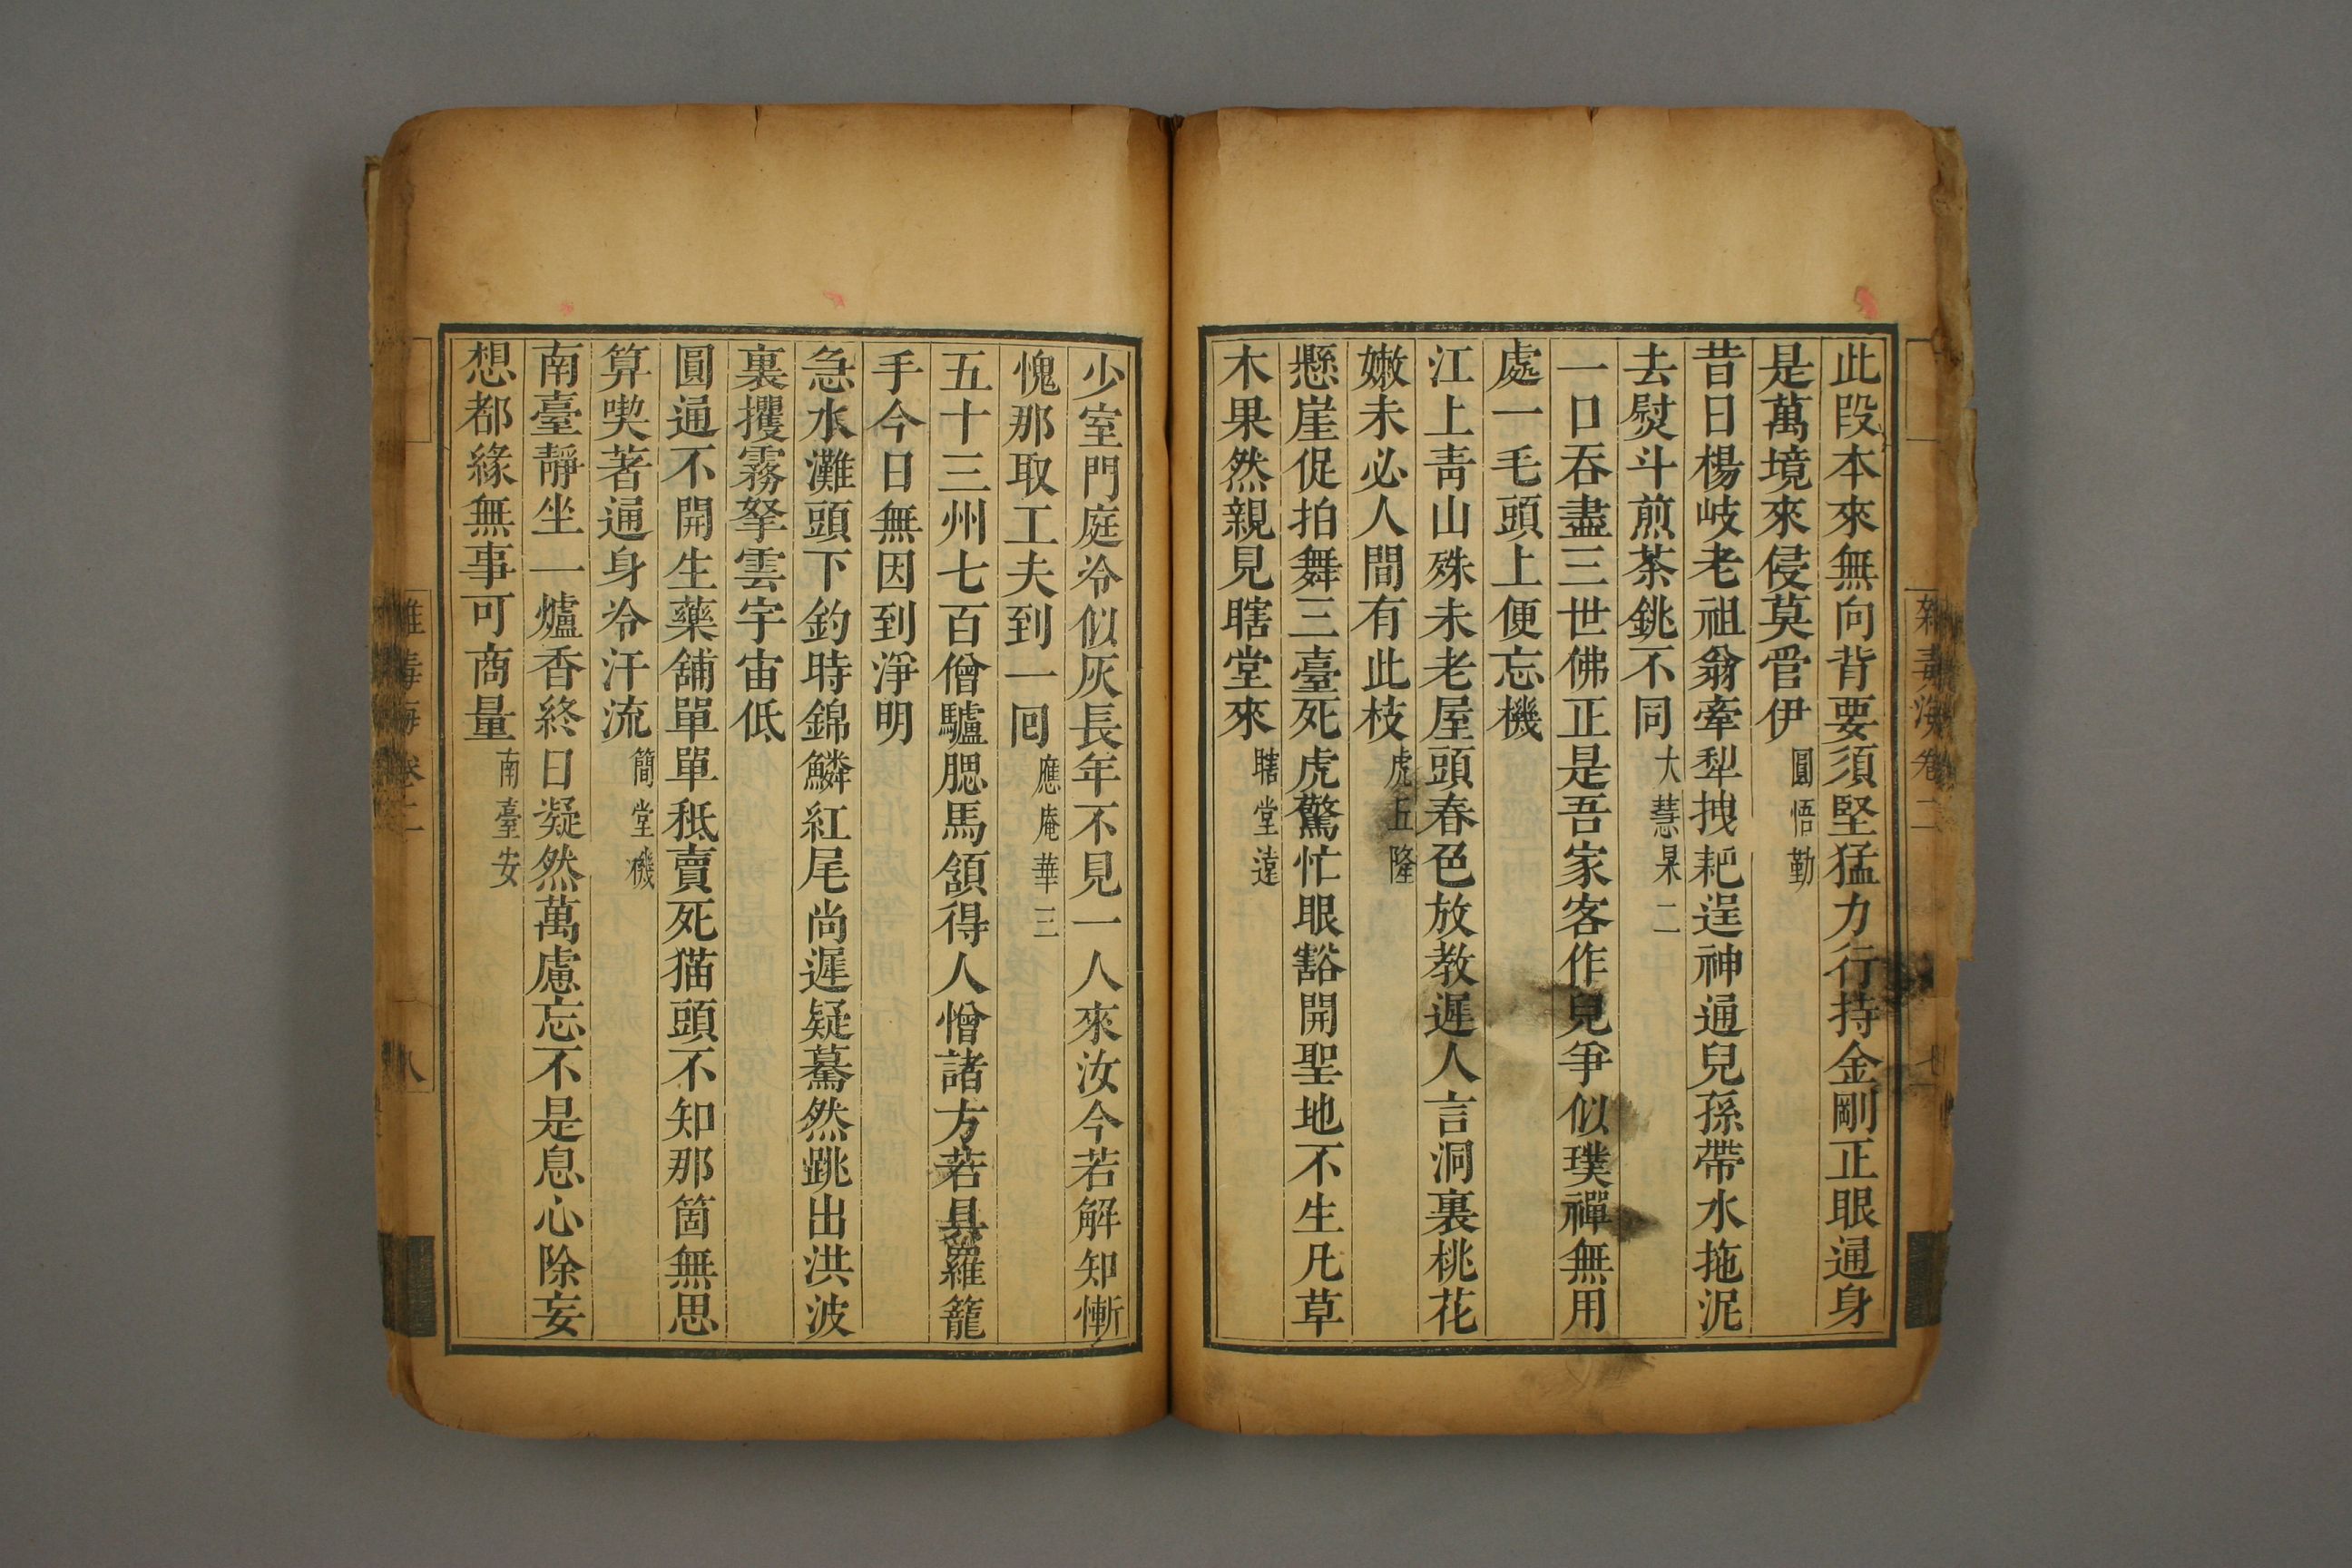 此段本來無向背要須堅猛力行持金剛正眼通身
是萬境來侵莫管伊 圓悟勤
昔日楊岐老祖翁牽犁拽耙逞神通兒孫帶水拖泥
去熨斗煎茶銚不同 大慧杲二
一口吞盡三世佛正是吾家客作兒爭似璞禪無用
處一毛頭上便忘機
江上青山殊未老屋頭春色放教遲人言洞裏桃花
嫩未必人間有此枝 虎丘隆
懸崖促拍舞三臺死虎驚忙眼豁開聖地不生凡草
木果然親見瞎堂來 瞎堂遠
雜毒海卷二
七
少室門庭冷似灰長年不見一人來汝今若解知慚
愧那取工夫到一囘 應庵華三
五十三州七百僧驢腮馬頷得人憎諸方若具羅籠
手今日無因到淨明
急水灘頭下釣時錦鱗紅尾尚遲疑驀然跳出洪波
裏攫霧拏雲宇宙低
圓通不開生藥舖單單秪賣死猫頭不知那箇無思
算喫著通身冷汗流 簡堂機
南臺靜坐一爐香終日凝然萬慮忘不是息心除妄
想都緣無事可商量 南臺安
雜毒海卷二
八